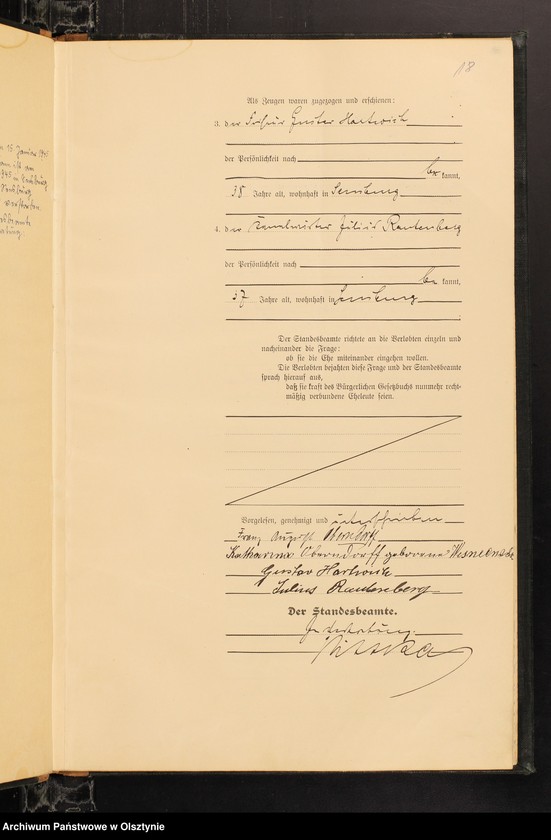 18
Als Zeugen waren zugezogen und erschienen:
3. der Friseur Gustav Hartwich
der Persönlichkeit nach
be kannt,
38 Jahre alt, wohnhaft in Sensburg
4. der Julius Rautenberg
der Persönlichkeit nach
be kannt,
37 Jahre alt, wohnhaft in Sensburg
Der Standesbeamte richtete an die Verlobten einzeln und
nacheinander die Frage:
ob sie die Ehe miteinander eingehen wollen.
Die Verlobten bejahten diese Frage und der Standesbeamte
sprach hierauf aus,
daß sie kraft des Bürgerlichen Gesetzbuchs nunmehr recht-
mäßig verbundene Eheleute seien.
Vorgelesen, genehmigt und unterschrieben
Franz August Oberndorff
Katharina Oberndorff geborene
Gustav Hartwich
Julius Rautenberg
Der Standesbeamte.
In Vertretung.
Archiwum Państwowe w Olsztynie